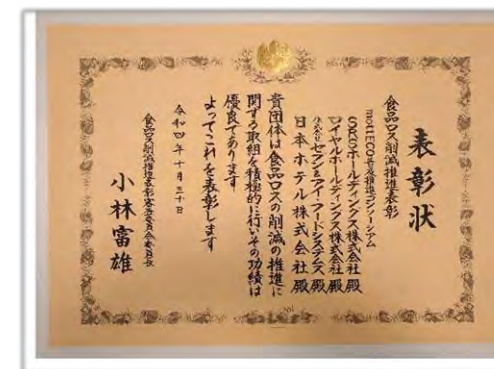 表彰状
食品ロス削減推進表彰
mottECO普及推進コンソーシアム
SRSホールディングス株式会社 殿
ロイヤルホールディングス株式会社 殿
株式会社セブン&アイ・フードシステムズ 殿
日本ホテル株式会社 殿
貴団体は食品ロスの削減の推進に
関する取組を積極的に行いその功績は
優良であります
よってこれを表彰します
令和四年十月三十日
食品ロス削減推進表彰審査委員会委員長
小林富雄